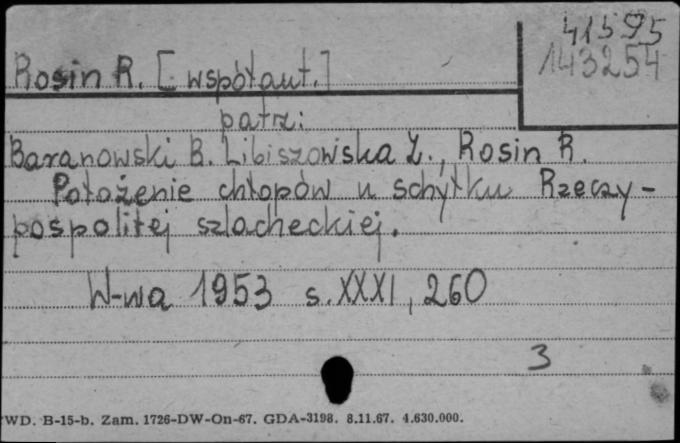 41595
143254
Rosin R. [współaut.]
patrz:
Baranowski B. Libiszowska Z., Rosin R.
Położenie chłopów u schyłku Rzeczy-
pospolitej szlacheckiej.
W-wa 1953 s. XXXI, 260
3
WD. B-15-b. Zam. 1726-DW-On-67. GDA-3198. 8.11.67. 4.630.000.